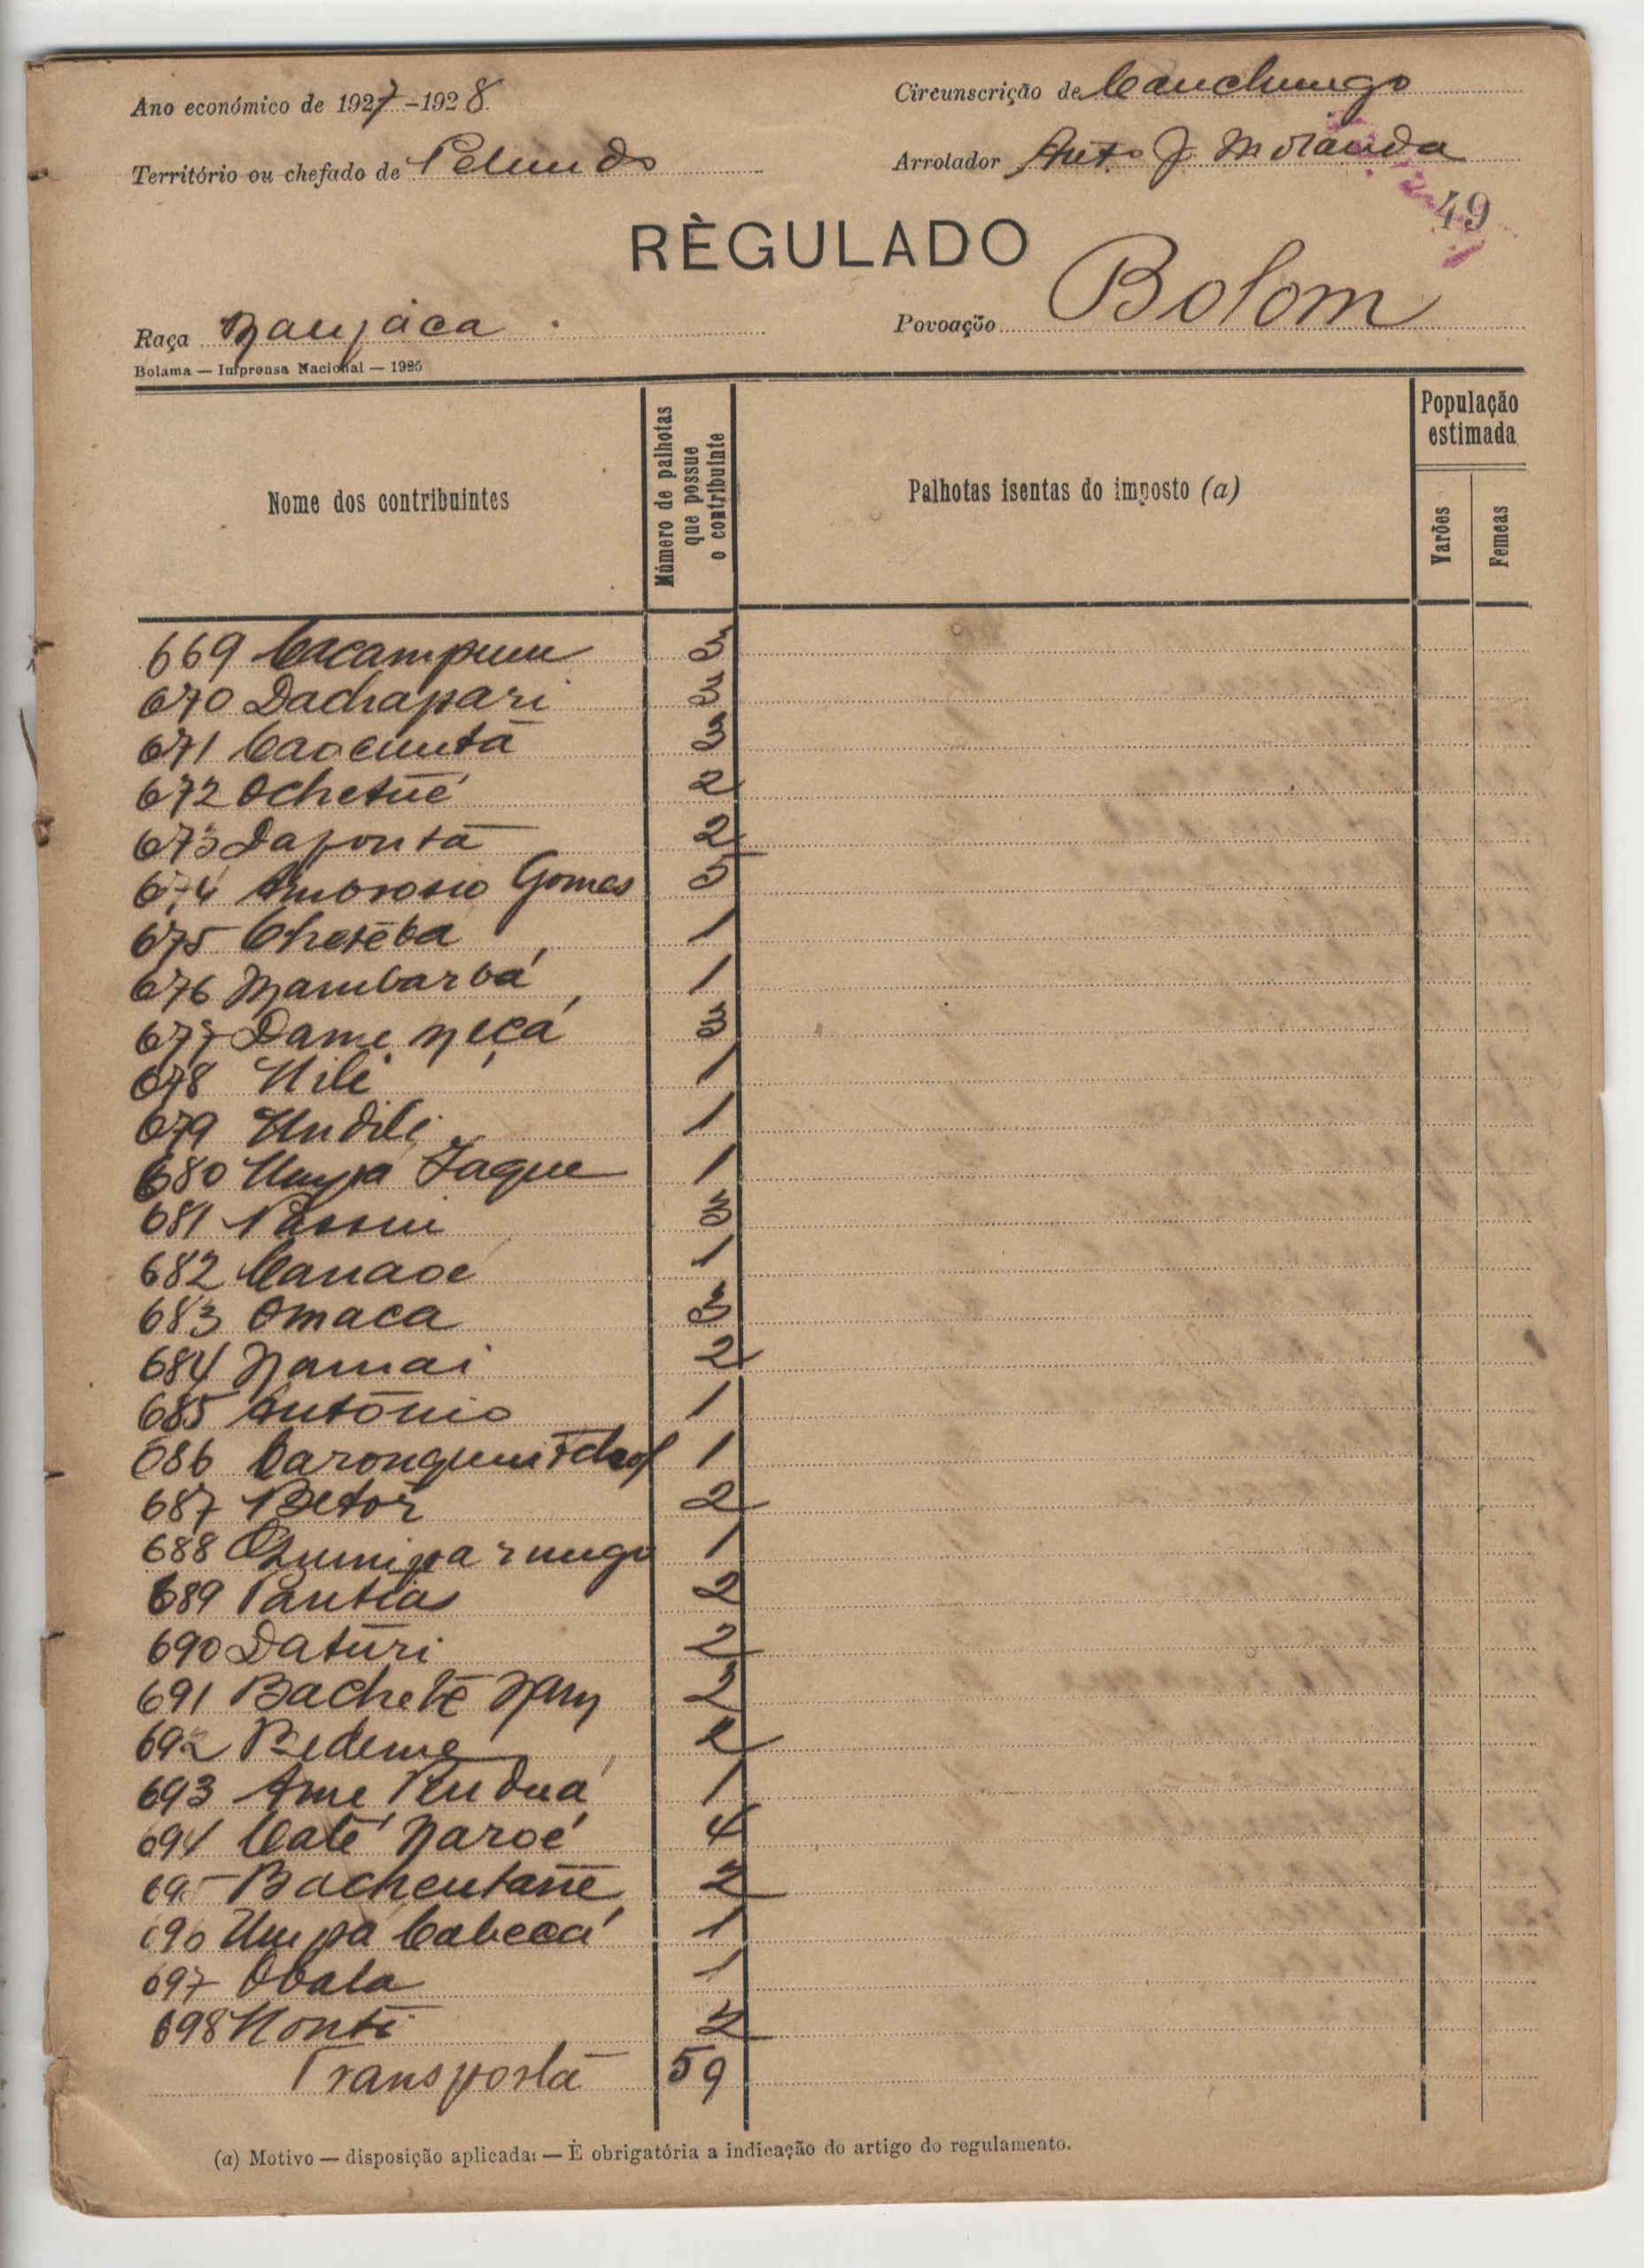 Ano económico de 1927-1928
Circunscrição de Canchungo
Território ou chefado de Pelundo
Arrolador Anto J. Miranda
49
RÈGULADO
Raça Manjaca
Povoação Bolom
Bolama — Imprensa Nacional — 1925
Nome dos contribuintes
Número de palhotas que possue o contribuinte
Palhotas isentas do imposto (a)
População estimada
Varões
Femeas
669 Cacampum 3
670 Dachapari 3
671 3
672 Ochetué 2
673 Dafonta 2
674 Ambrosio Gomes 5
675 Cheteba 1
676 Mambarbá 1
677 Dame Neçá 3
678 Uile 1
679 Undili 1
680 Umpa Jaque 1
681 Passui 3
682 Canaoe 1
683 Omaca 3
684 Namai 2
685 António 1
686 1
687 Betor 2
688 1
689 Pantias 2
690 Daturi 2
691 Bachete 2
692 Bedeme 2
693 Ame Penduá 1
694 Caté Naroé 4
695 Bachentane 2
696 Umpa Cabecá 1
697 Obala 1
698 Nonti 2
Transporta 59
(a) Motivo — disposição aplicada: — È obrigatória a indicação do artigo do regulamento.